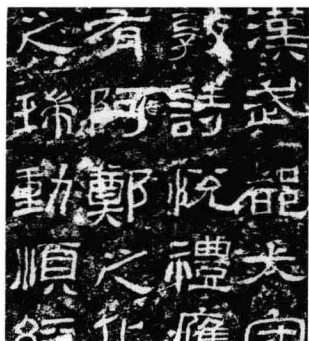 漢武都太守
敦詩悅禮膺
有阿鄭之化
之瑞動順經